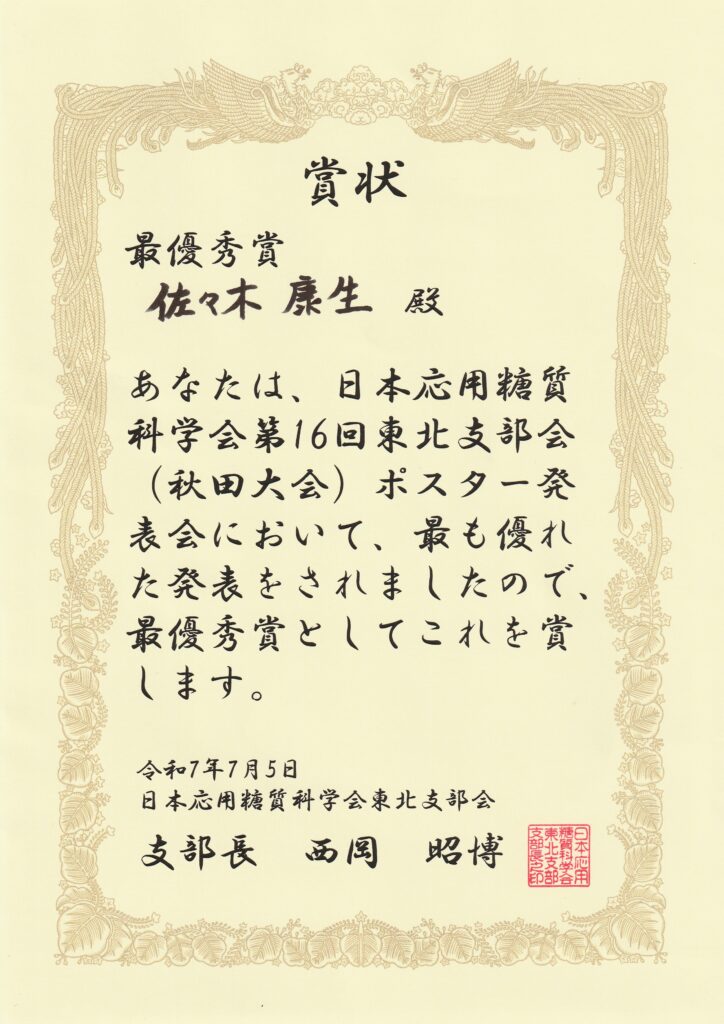 賞状
最優秀賞
佐々木 康生 殿
あなたは、日本応用糖質
科学会第16回東北支部会
（秋田大会）ポスター発
表会において、最も優れ
た発表をされましたので、
最優秀賞としてこれを賞
します。
令和7年7月5日
日本応用糖質科学会東北支部会
支部長 西岡 昭博
日本応用
糖質科学会
東北支部
支部長之印